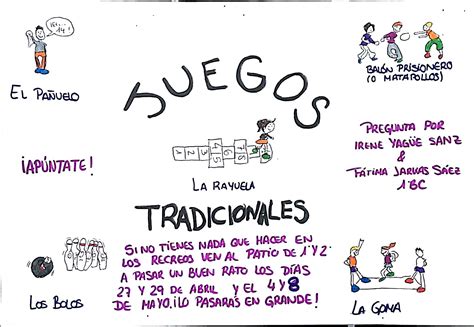 ¡14!
EL PAÑUELO
JUEGOS
BALÓN PRISIONERO
(O MATAPOLLOS)
¡APÚNTATE!
1 2 3 4 5 6 7 8
LA RAYUELA
PREGUNTA POR
IRENE YAGÜE SANZ
&
FÁTIMA JARVAS SÁEZ
1ºBC
TRADICIONALES
LOS BOLOS
SI NO TIENES NADA QUE HACER EN
LOS RECREOS VEN AL PATIO DE 1º Y 2º
A PASAR UN BUEN RATO LOS DÍAS
27 Y 29 DE ABRIL Y EL 4 Y 8
DE MAYO. ¡LO PASARÁS EN GRANDE!
LA GOMA